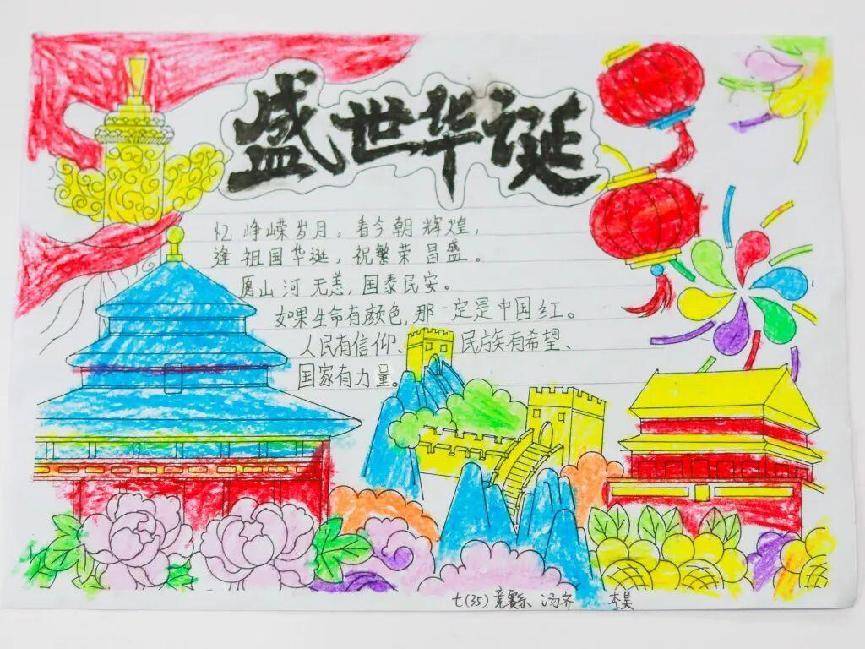 盛世华诞
忆峥嵘岁月,看今朝辉煌,
逢祖国华诞,祝繁荣昌盛。
愿山河无恙,国泰民安。
如果生命有颜色,那一定是中国红。
人民有信仰、民族有希望、
国家有力量。
七(35) 汤齐 李昊